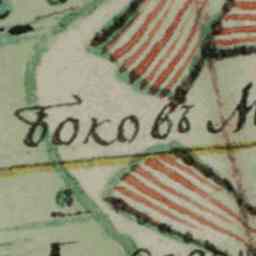 Боковъ